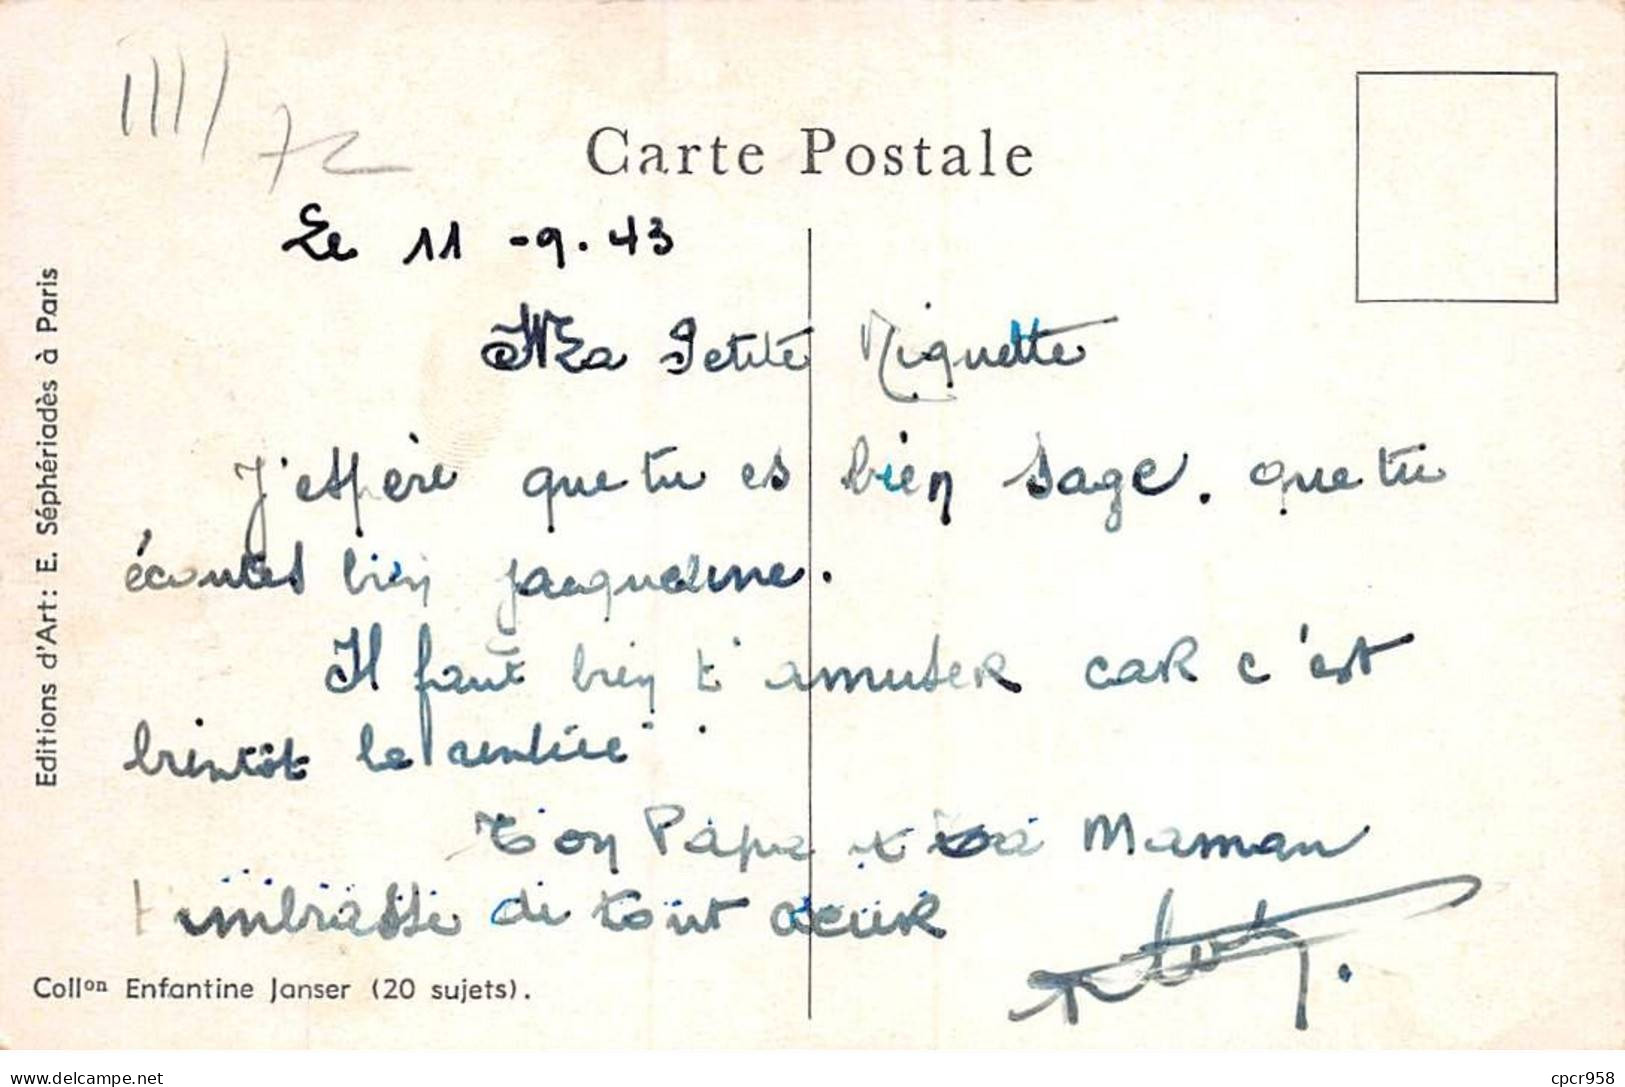 1111/72
Carte Postale
Le 11 - 9. 43
Ma Petite Niquette
J'espère que tu es bien sage. que tu
écoutes bien Jacqueline.
Il faut bien t'amuser car c'est
bientôt la rentrée.
Ton Papa et ta Maman
t'embrasse de tout coeur
Editions d'Art: E. Séphériadès à Paris
Collon Enfantine Janser (20 sujets).
www.delcampe.net
cpcr958